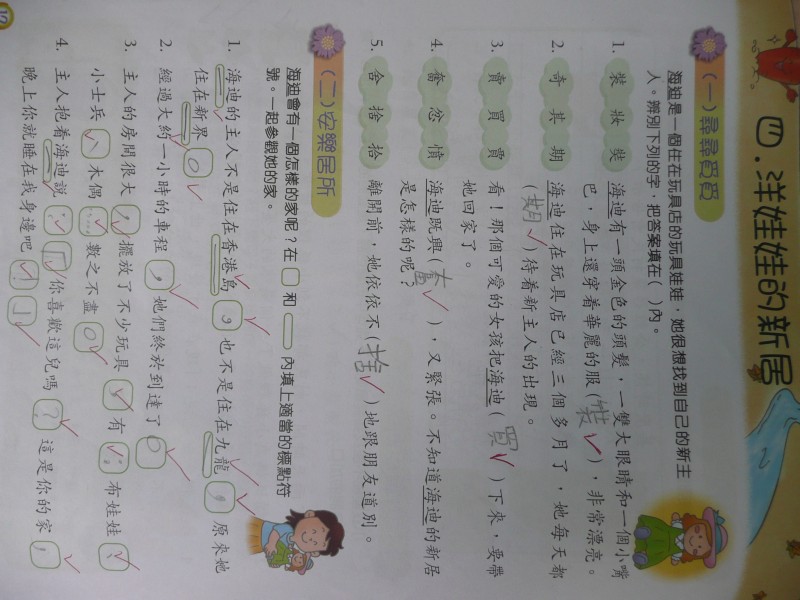 四．洋娃娃的新居
（一）尋尋覓覓
海迪是一個住在玩具店的玩具娃娃，她很想找到自己的新主
人。辨別下列的字，把答案填在（ ）內。
1. 裝 妝 奘 海迪有一頭金色的頭髮，一雙大眼睛和一個小嘴
巴，身上還穿着華麗的服（裝），非常漂亮。
2. 奇 其 期 海迪住在玩具店已經三個多月了，她每天都
（期）待着新主人的出現。
3. 賣 買 貴 看！那個可愛的女孩把海迪（買）下來，要帶
她回家了。
4. 奮 忿 憤 海迪既興（奮），又緊張。不知道海迪的新居
是怎樣的呢？
5. 舍 捨 拾 離開前，她依依不（捨）地跟朋友道別。
（二）安樂居所
海迪會有一個怎樣的家呢？在 和 內填上適當的標點符
號。一起參觀她的家。
1. 海迪的主人不是住在香港島，也不是住在九龍，原來她
住在新界。
2. 經過大約一小時的車程，她們終於到達了。
3. 主人的房間很大，擺放了不少玩具，有 布娃娃、
小士兵、木偶……數之不盡。
4. 主人抱着海迪說：「你喜歡這兒嗎？這是你的家，
晚上你就睡在我身邊吧！」